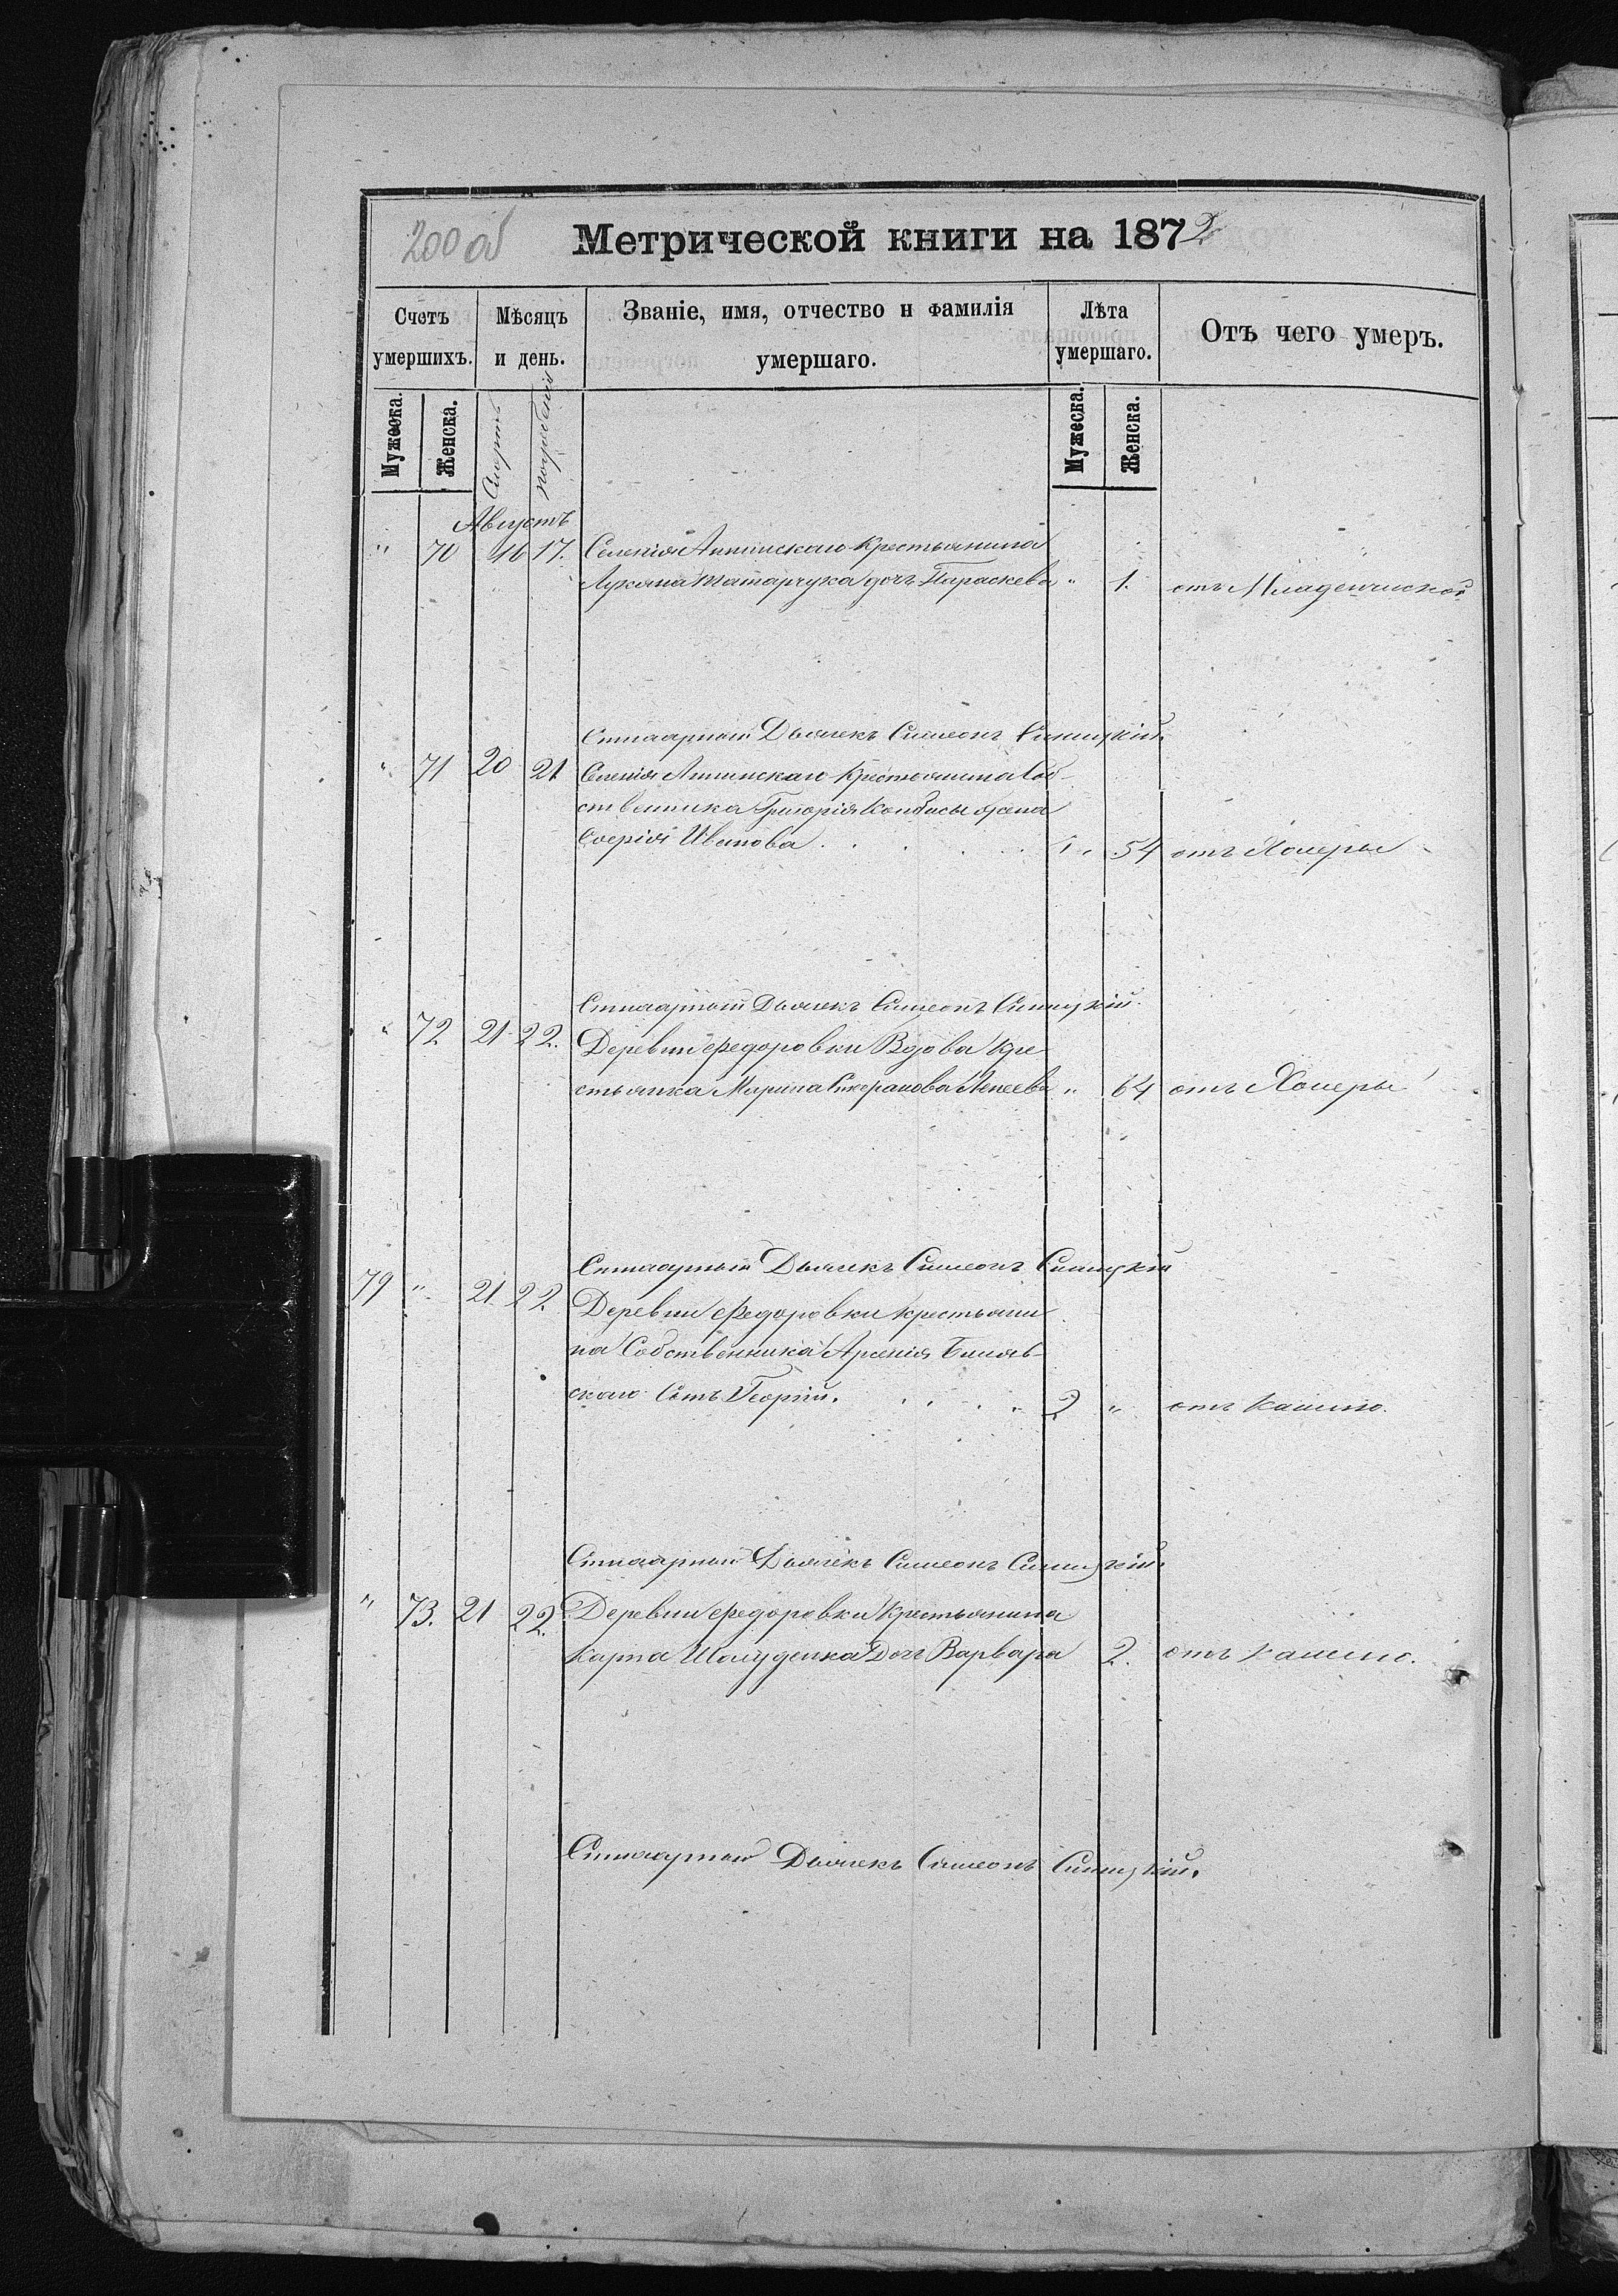 200 об
Метрической книги на 1872
Счетъ умершихъ.
Мѣсяцъ и день.
Званіе, имя, отчество и фамилія умершаго.
Лѣта умершаго.
Отъ чего умеръ.
Мужеска. Женска. Смерть погребенія Мужеска. Женска.
Августъ
" 70 16 17. Селенія Аннинскаго Крестьянина
Лукяна Татарчука дочь Параскева " 1. отъ Младенчиской
Стихарный Дьячекъ Симеонъ Синицкій.
" 71 20 21 Селенія Аннинскаго Крестьянина Соб-
ственника Григорія жена
Иванова 54 отъ Холеры
Стихарный Дьячекъ Симеонъ Синицкій.
" 72 21 22. Деревни Федоровки Вдова Кре
стьянка Марина " 64 отъ Холеры
Стихарный Дьячекъ Симеонъ Синицкій
79 " 21 22. Деревни Федоровки крестьяни
на Собственника Арсенія Биляв-
скаго Сынъ Георгій. 2 " отъ кашлю.
Стихарный Дьячекъ Симеонъ Синицкій.
" 73. 21 22. Деревни Федоровки Крестьянина
Карпа Шолуденка Дочь Варвара 2. отъ кашлю.
Стихарный Дьячекъ Симеонъ Синицкій.